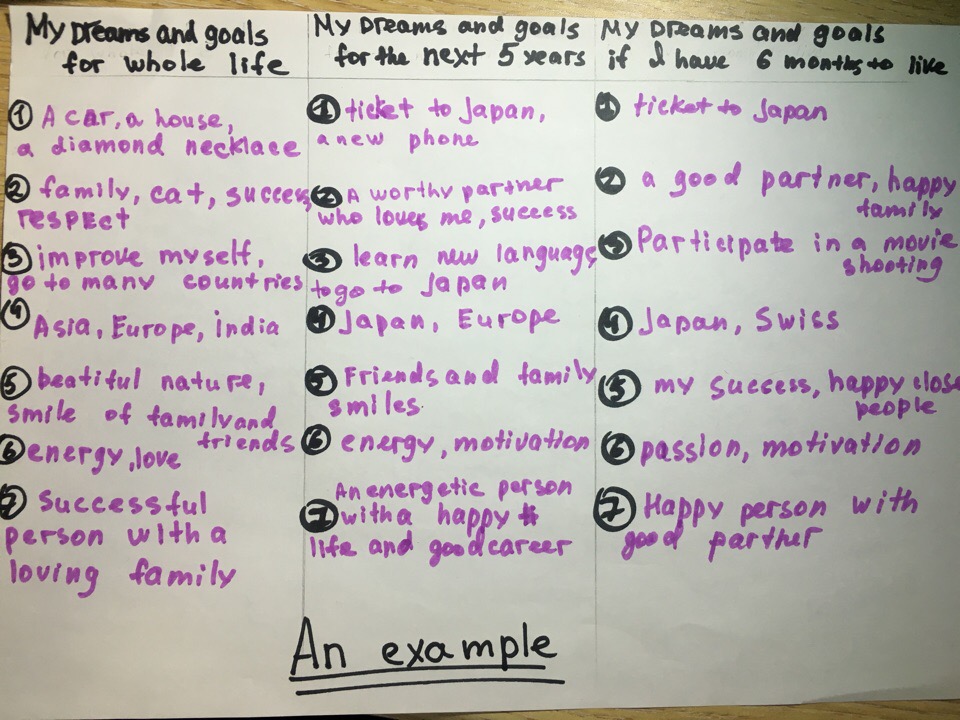 My Dreams and goals
for whole life
① A car, a house,
a diamond necklace
② family, cat, success
respect
③ improve myself,
go to many countries
④ Asia, Europe, india
⑤ beatiful nature,
smile of family and
friends
⑥ energy, love
⑦ Successful
person with a
loving family
My Dreams and goals
for the next 5 years
① ticket to Japan,
a new phone
② A worthy partner
who loves me, success
③ learn new language
to go to Japan
④ Japan, Europe
⑤ Friends and family
smiles.
⑥ energy, motivation
An energetic person
⑦ with a happy
life and good career
My Dreams and goals
if I have 6 months to like
① ticket to Japan
② a good partner, happy
family
③ Participate in a movie
shooting
④ Japan, Swiss
⑤ my success, happy close
people
⑥ passion, motivation
⑦ Happy person with
good partner
An example